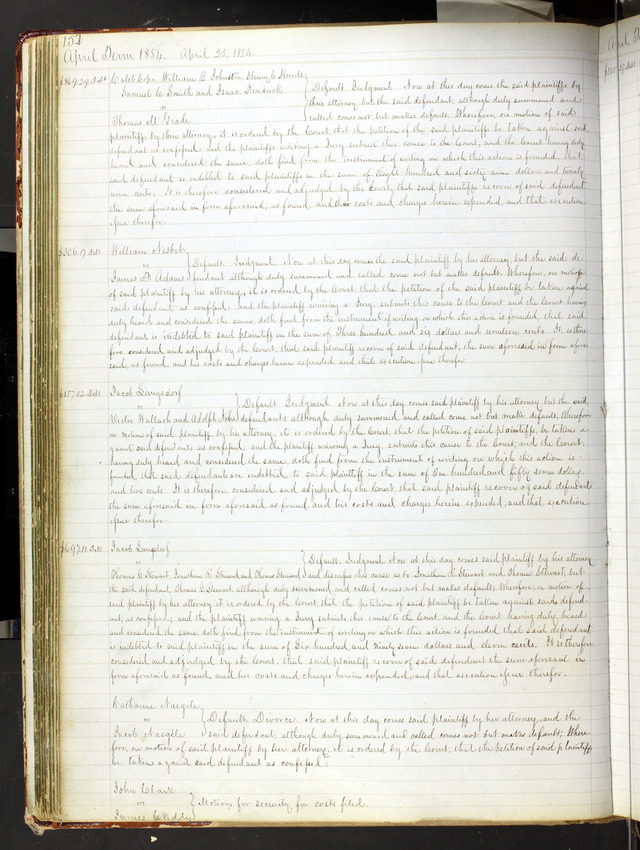 152
April Term 1854. April 25, 1854.
$869.29. Debt Caleb Cope, William B. Johnston, Henry C. Howell
Samuel C. Smith and Isaac Kendrick
vs
Thomas M. Grade
Default Judgment. Now at this day come the said plaintiffs by
their attorney, but the said defendant although duly summoned and
called comes not but makes default. Wherefore, on motion of said
plaintiffs by their attorney, it is ordered by the Court that the petition of the said plaintiffs be taken against said
defendant as confessed. and the plaintiffs waiving a Jury submit this cause to the Court, and the Court having duly
heard and considered the same, doth find from the instrument of writing on which this action is founded, that
said defendant is indebted to said plaintiffs in the sum of Eight hundred and sixty nine dollars and twenty
nine cents. It is therefore considered and adjudged by the Court, that said plaintiffs recover of said defendant
the sum aforesaid in form aforesaid, as found, and their costs and charges herein expended and that execution
issue therefor.
$306.17 Debt William Nisbet
vs
James P. Adams
Default Judgment. Now at this day comes the said plaintiff by his attorney, but the said de
fendant although duly summoned and called comes not but makes default. Wherefore, on motion
of said plaintiff by his attorney, it is ordered by the Court that the petition of the said plaintiff be taken against
said defendant as confessed: and the plaintiff waiving a Jury, submits this cause to the Court, and the Court having
duly heard and considered the same, doth find from the instrument of writing on which this action is founded, that said
defendant is indebted to said plaintiff in the sum of Three hundred and six dollars and seventeen cents. It is there
fore considered and adjudged by the Court, that said plaintiff recover of said defendant, the sum aforesaid in form afore
said, as found, and his costs and charges herein expended, and that execution issue therefor.
$157.02. Debt Jacob Langsdorf
vs
Victor Wallach and Adolph
Default Judgment Now at this day comes said plaintiff by his attorney but the said
defendants although duly summoned and called come not but make default. Wherefore
on motion of said plaintiff, by his attorney, it is ordered by the Court, that the petition of said plaintiffs, be taken a
gainst said defendants as confessed and the plaintiff waiving a Jury, submits this cause to the Court, and the Court
having duly heard and considered the same, doth find from the instrument of writing on which this action is
founded, that said defendants are indebted to said plaintiff in the sum of One hundred and fifty seven dollars
and two cents. It is therefore considered and adjudged by the Court, that said plaintiff recover of said defendants
the sum aforesaid in form aforesaid as found, and his costs and charges herein expended, and that execution
issue therefor.
$697.11. Debt Jacob Langsdorf
vs
Thomas C. Stewart, Jonathan R. Steward and Thomas Steward
Default Judgment Now at this day comes said plaintiff by his attorney
and dismisses this cause as to Jonathan R. Stewart and Thomas Stewart, but
the said defendant, Thomas C. Stewart although duly summoned and called comes not but makes default. Wherefore, on motion of
said plaintiff by his attorney it is ordered by the Court, that the petition of said plaintiff be taken against said defend-
ant, as confessed; and the plaintiff waiving a Jury submits this cause to the Court, and the Court having duly, heard
and considered the same, doth find from the instrument of writing on which this action is founded, that said defendant
is indebted to said plaintiff in the sum of Six hundred and Ninety seven dollars and eleven cents. It is therefore
considered and adjudged by the Court, that said plaintiff recover of said defendant the sum aforesaid in
form aforesaid as found, and his costs and charges herein expended, and that execution issue therefor.
Catharine Naegele
vs
Jacob Naegele
Default Divorce Now at this day comes said plaintiff by her attorney, and the
said defendant although duly summoned and called comes not but makes default; Where
fore, on motion of said plaintiff by her attorney, it is ordered by the Court, that the petition of said plaintiff
be taken against said defendant as confessed:
John Clark
vs
James Keddy
Motion for security for costs filed.
April